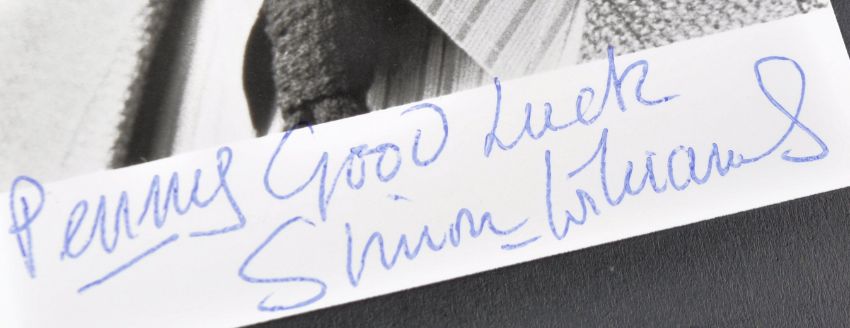 Penny Good Luck
Simon Williams